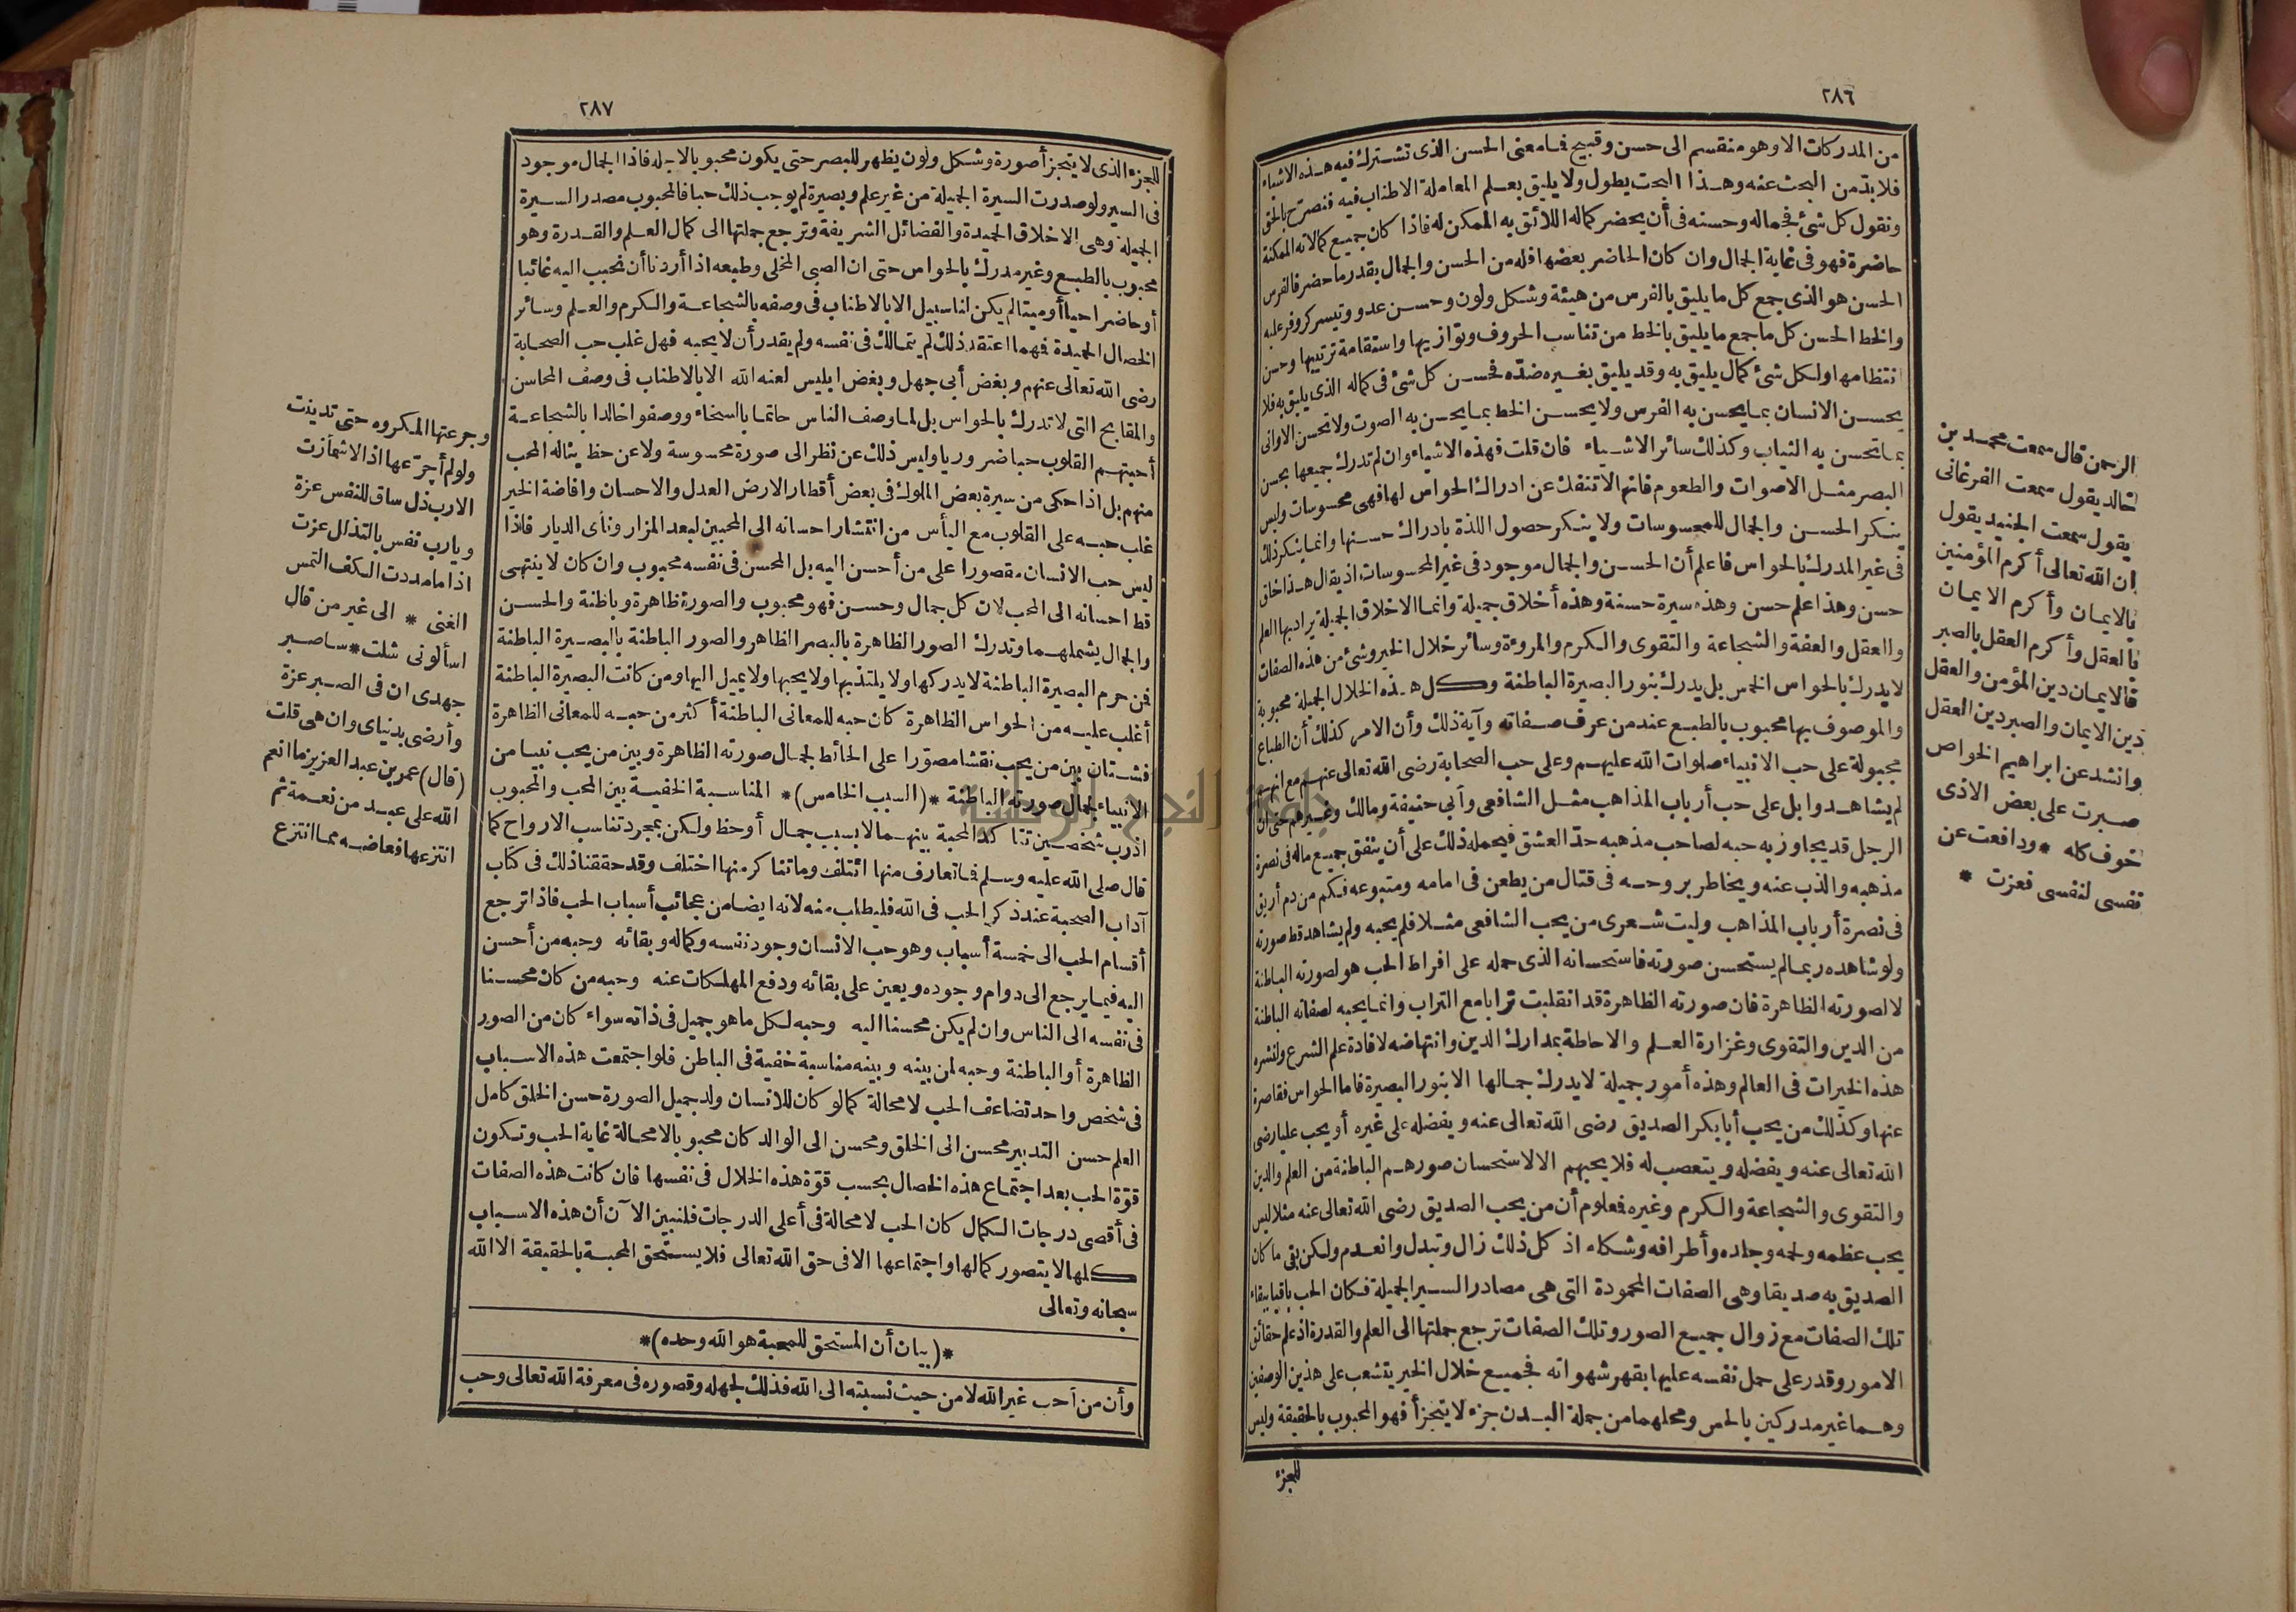 ٢٨٦
من المدركات الا وهو منقسم الى حسن وقبيح فما معنى الحسن الذى تشترك فيه هذه الاشياء
فلا بدّ من البحث عنه وهذا البحث يطول ولا يليق بعلم المعاملة الاطناب فيه فنصرّح بالحق
ونقول كل شئ فجماله وحسنه فى أن يحضر كماله اللائق به الممكن له فاذا كان جميع كمالاته الممكنة
حاضرة فهو فى غاية الجمال وان كان الحاضر بعضها فله من الحسن والجمال بقدر ما حضر فالفرس
الحسن هو الذى جمع كل ما يليق بالفرس من هيئة وشكل ولون وحسن عدو وتيسر كر وفر عليه
والخط الحسن كل ما جمع ما يليق بالخط من تناسب الحروف وتوازيها واستقامة ترتيبها وحسن
انتظامها ولكل شئ كمال يليق به وقد يليق بغيره ضدّه فحسن كل شئ فى كماله الذى يليق به فلا
يحسن الانسان بما يحسن به الفرس ولا يحسن الخط بما يحسن به الصوت ولا تحسن الاوانى
بما تحسن به الثياب وكذلك سائر الاشياء فان قلت فهذه الاشياء وان لم تدرك جميعها بحسن
البصر مثل الاصوات والطعوم فانها لا تنفك عن ادراك الحواس لها فهى محسوسات وليس
ينكر الحسن والجمال للمحسوسات ولا ينكر حصول اللذة بادراك حسنها وانما ينكر ذلك
فى غير المدرك بالحواس فاعلم أن الحسن والجمال موجود فى غير المحسوسات اذ يقال هذا خلق
حسن وهذا علم حسن وهذه سيرة حسنة وهذه أخلاق جميلة وانما الاخلاق الجميلة يراد بها العلم
والعقل والعفة والشجاعة والتقوى والكرم والمروءة وسائر خلال الخير وشئ من هذه الصفات
لا يدرك بالحواس الخمس بل يدرك بنور البصيرة الباطنة وكل هذه الخلال الجميلة محبوبة
والموصوف بها محبوب بالطبع عند من عرف صفاته وآية ذلك وأن الامر كذلك أن الطباع
مجبولة على حب الانبياء صلوات الله عليهم وعلى حب الصحابة رضى الله تعالى عنهم مع انهم
لم يشاهدوا بل على حب أرباب المذاهب مثل الشافعى وأبى حنيفة ومالك وغيرهم حتى أن
الرجل قد يجاوز به حبه لصاحب مذهبه حدّ العشق فيحمله ذلك على أن ينفق جميع ماله فى نصرة
مذهبه والذب عنه ويخاطر بروحه فى قتال من يطعن فى امامه ومتبوعه فكم من دم أريق
فى نصرة أرباب المذاهب وليت شعرى من يحب الشافعى مثلا فلم يحبه ولم يشاهد قط صورته
ولو شاهده ربما لم يستحسن صورته فاستحسانه الذى حمله على افراط الحب هو لصورته الباطنة
لا لصورته الظاهرة فان صورته الظاهرة قد انقلبت ترابا مع التراب وانما يحبه لصفاته الباطنة
من الدين والتقوى وغزارة العلم والاحاطة بمدارك الدين وانتهاضه لافادة علم الشرع ولنشره
هذه الخيرات فى العالم وهذه أمور جميلة لا يدرك جمالها الا بنور البصيرة فاما الحواس فقاصرة
عنها وكذلك من يحب أبا بكر الصديق رضى الله تعالى عنه ويفضله على غيره أو يحب عليا رضى
الله تعالى عنه ويفضله ويتعصب له فلا يحبهم الا لاستحسان صورهم الباطنة من العلم والدين
والتقوى والشجاعة والكرم وغيره فعلوم أن من يحب الصديق رضى الله تعالى عنه مثلا ليس
يحب عظمه ولحمه وجلده وأطرافه وشكله اذ كل ذلك زال وتبدل وانعدم ولكن بقى ما كان
الصديق به صديقا وهى الصفات المحمودة التى هى مصادر السير الجميلة فكان الحب باقيا ببقاء
تلك الصفات مع زوال جميع الصور وتلك الصفات ترجع جملتها الى العلم والقدرة اذ علم حقائق
الامور وقدر على حمل نفسه عليها بقهر شهواته فجميع خلال الخير يتشعب على هذين الوصفين
وهما غير مدركين بالحس ومحلهما من جملة البدن جزء لا يتجزأ فهو المحبوب بالحقيقة وليس
للجزء
الرحمن قال سمعت محمد بن
خالد يقول سمعت الفرغانى
يقول سمعت الجنيد يقول
ان الله تعالى أكرم المؤمنين
بالايمان وأكرم الايمان
بالعقل وأكرم العقل بالصبر
فالايمان دين المؤمن والعقل
دين الايمان والصبر دين العقل
وانشد عن ابراهيم الخواص
صبرت على بعض الاذى
خوف كله * ودافعت عن
نفسى لنفسى فعزت *
٢٨٧
للجزء الذى لا يتجزأ صورة وشكل ولون يظهر للبصر حتى يكون محبوبا لاجله فاذا الجمال موجود
فى السير ولو صدرت السيرة الجميلة من غير علم وبصيرة لم يوجب ذلك حبا فالمحبوب مصدر السيرة
الجميلة وهى الاخلاق الحميدة والفضائل الشريفة وترجع جملتها الى كمال العلم والقدرة وهو
محبوب بالطبع وغير مدرك بالحواس حتى ان الصبى المخلى وطبعه اذا أردنا أن نحبب اليه غائبا
أو حاضرا حيا أو ميتا لم يكن لنا سبيل الا بالاطناب فى وصفه بالشجاعة والكرم والعلم وسائر
الخصال الحميدة فهما اعتقد ذلك لم يتمالك فى نفسه ولم يقدر أن لا يحبه فهل غلب حب الصحابة
رضى الله تعالى عنهم وبغض أبى جهل وبغض ابليس لعنه الله الا بالاطناب فى وصف المحاسن
والمقابح التى لا تدرك بالحواس بل لما وصف الناس حاتما بالسخاء ووصفوا خالدا بالشجاعة
أحبتهم القلوب حبا ضروريا وليس ذلك عن نظر الى صورة محسوسة ولا عن حظ يناله المحب
منهم بل اذا حكى من سيرة بعض الملوك فى بعض أقطار الارض العدل والاحسان وافاضة الخير
غلب حبه على القلوب مع اليأس من انتشار احسانه الى المحبين لبعد المزار ونأى الديار فاذا
ليس حب الانسان مقصورا على من أحسن اليه بل المحسن فى نفسه محبوب وان كان لا ينتهى
قط احسانه الى المحب لان كل جمال وحسن فهو محبوب والصورة ظاهرة وباطنة والحسن
والجمال يشملهما وتدرك الصور الظاهرة بالبصر الظاهر والصور الباطنة بالبصيرة الباطنة
فمن حرم البصيرة الباطنة لا يدركها ولا يلتذ بها ولا يحبها ولا يميل اليها ومن كانت البصيرة الباطنة
أغلب عليه من الحواس الظاهرة كان حبه للمعانى الباطنة أكثر من حبه للمعانى الظاهرة
فشتان بين من يحب نقشا مصوّرا على الحائط لجمال صورته الظاهرة وبين من يحب نبيا من
الانبياء لجمال صورته الباطنة *(السبب الخامس)* المناسبة الخفية بين المحب والمحبوب
اذ رب شخصين تتأكد المحبة بينهما لا بسبب جمال أو حظ ولكن بمجرد تناسب الارواح كما
قال صلى الله عليه وسلم فما تعارف منها ائتلف وما تناكر منها اختلف وقد حققنا ذلك فى كتاب
آداب الصحبة عند ذكر الحب فى الله فليطلب منه لانه ايضا من عجائب أسباب الحب فاذا ترجع
أقسام الحب الى خمسة أسباب وهو حب الانسان وجود نفسه وكماله وبقائه وحبه من أحسن
اليه فيما يرجع الى دوام وجوده ويعين على بقائه ودفع المهلكات عنه وحبه من كان محسنا
فى نفسه الى الناس وان لم يكن محسنا اليه وحبه لكل ما هو جميل فى ذاته سواء كان من الصور
الظاهرة أو الباطنة وحبه لمن بينه وبينه مناسبة خفية فى الباطن فلو اجتمعت هذه الاسباب
فى شخص واحد تضاعف الحب لا محالة كما لو كان للانسان ولد جميل الصورة حسن الخلق كامل
العلم حسن التدبير محسن الى الخلق ومحسن الى الوالد كان محبوبا لا محالة غاية الحب وتكون
قوّة الحب بعد اجتماع هذه الخصال بحسب قوّة هذه الخلال فى نفسها فان كانت هذه الصفات
فى أقصى درجات الكمال كان الحب لا محالة فى أعلى الدرجات فلنبين الآن أن هذه الاسباب
كلها لا يتصور كمالها واجتماعها الا فى حق الله تعالى فلا يستحق المحبة بالحقيقة الا الله
سبحانه وتعالى
*(بيان أن المستحق للمحبة هو الله وحده)*
وأن من أحب غير الله لا من حيث نسبته الى الله فذلك لجهله وقصوره فى معرفة الله تعالى وحب
وجرعتها المكروه حتى تدربت
ولو لم أجرّعها اذا لاشمأزت
الا رب ذل ساق للنفس عزة
ويا رب نفس بالتذلل عزت
اذا ما مددت الكف التمس
الغنى * الى غير من قال
اسألونى شلت * سأصبر
جهدى ان فى الصبر عزة
وأرضى بدنياى وان هى قلت
(قال) عمر بن عبد العزيز ما انعم
الله على عبد من نعمة ثم
انتزعها فعاضه مما انتزع
جامعة النجاح الوطنية